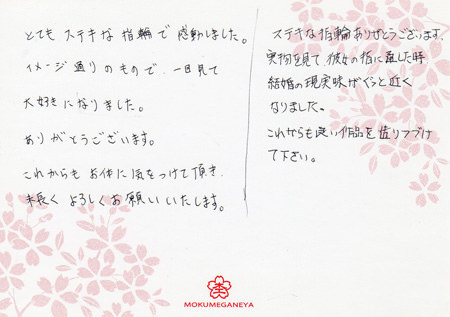 とても ステキな 指輪 で 感動しました。
イメージ通りのもので、一目見て
大好きになりました。
ありがとうございます。
これからも お体に気をつけて頂き、
末長く よろしくお願いいたします。
ステキな指輪ありがとうございます。
実物を見て 彼女の指に着した時
結婚の現実味がぐっと近く
なりました。
これからも良い作品を造りつづけ
て下さい。
MOKUMEGANEYA